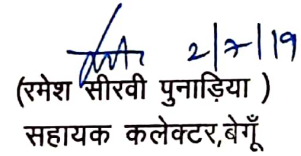 2/7/19
(रमेश सीरवी पुनाड़िया )
सहायक कलेक्टर,बेगूँ